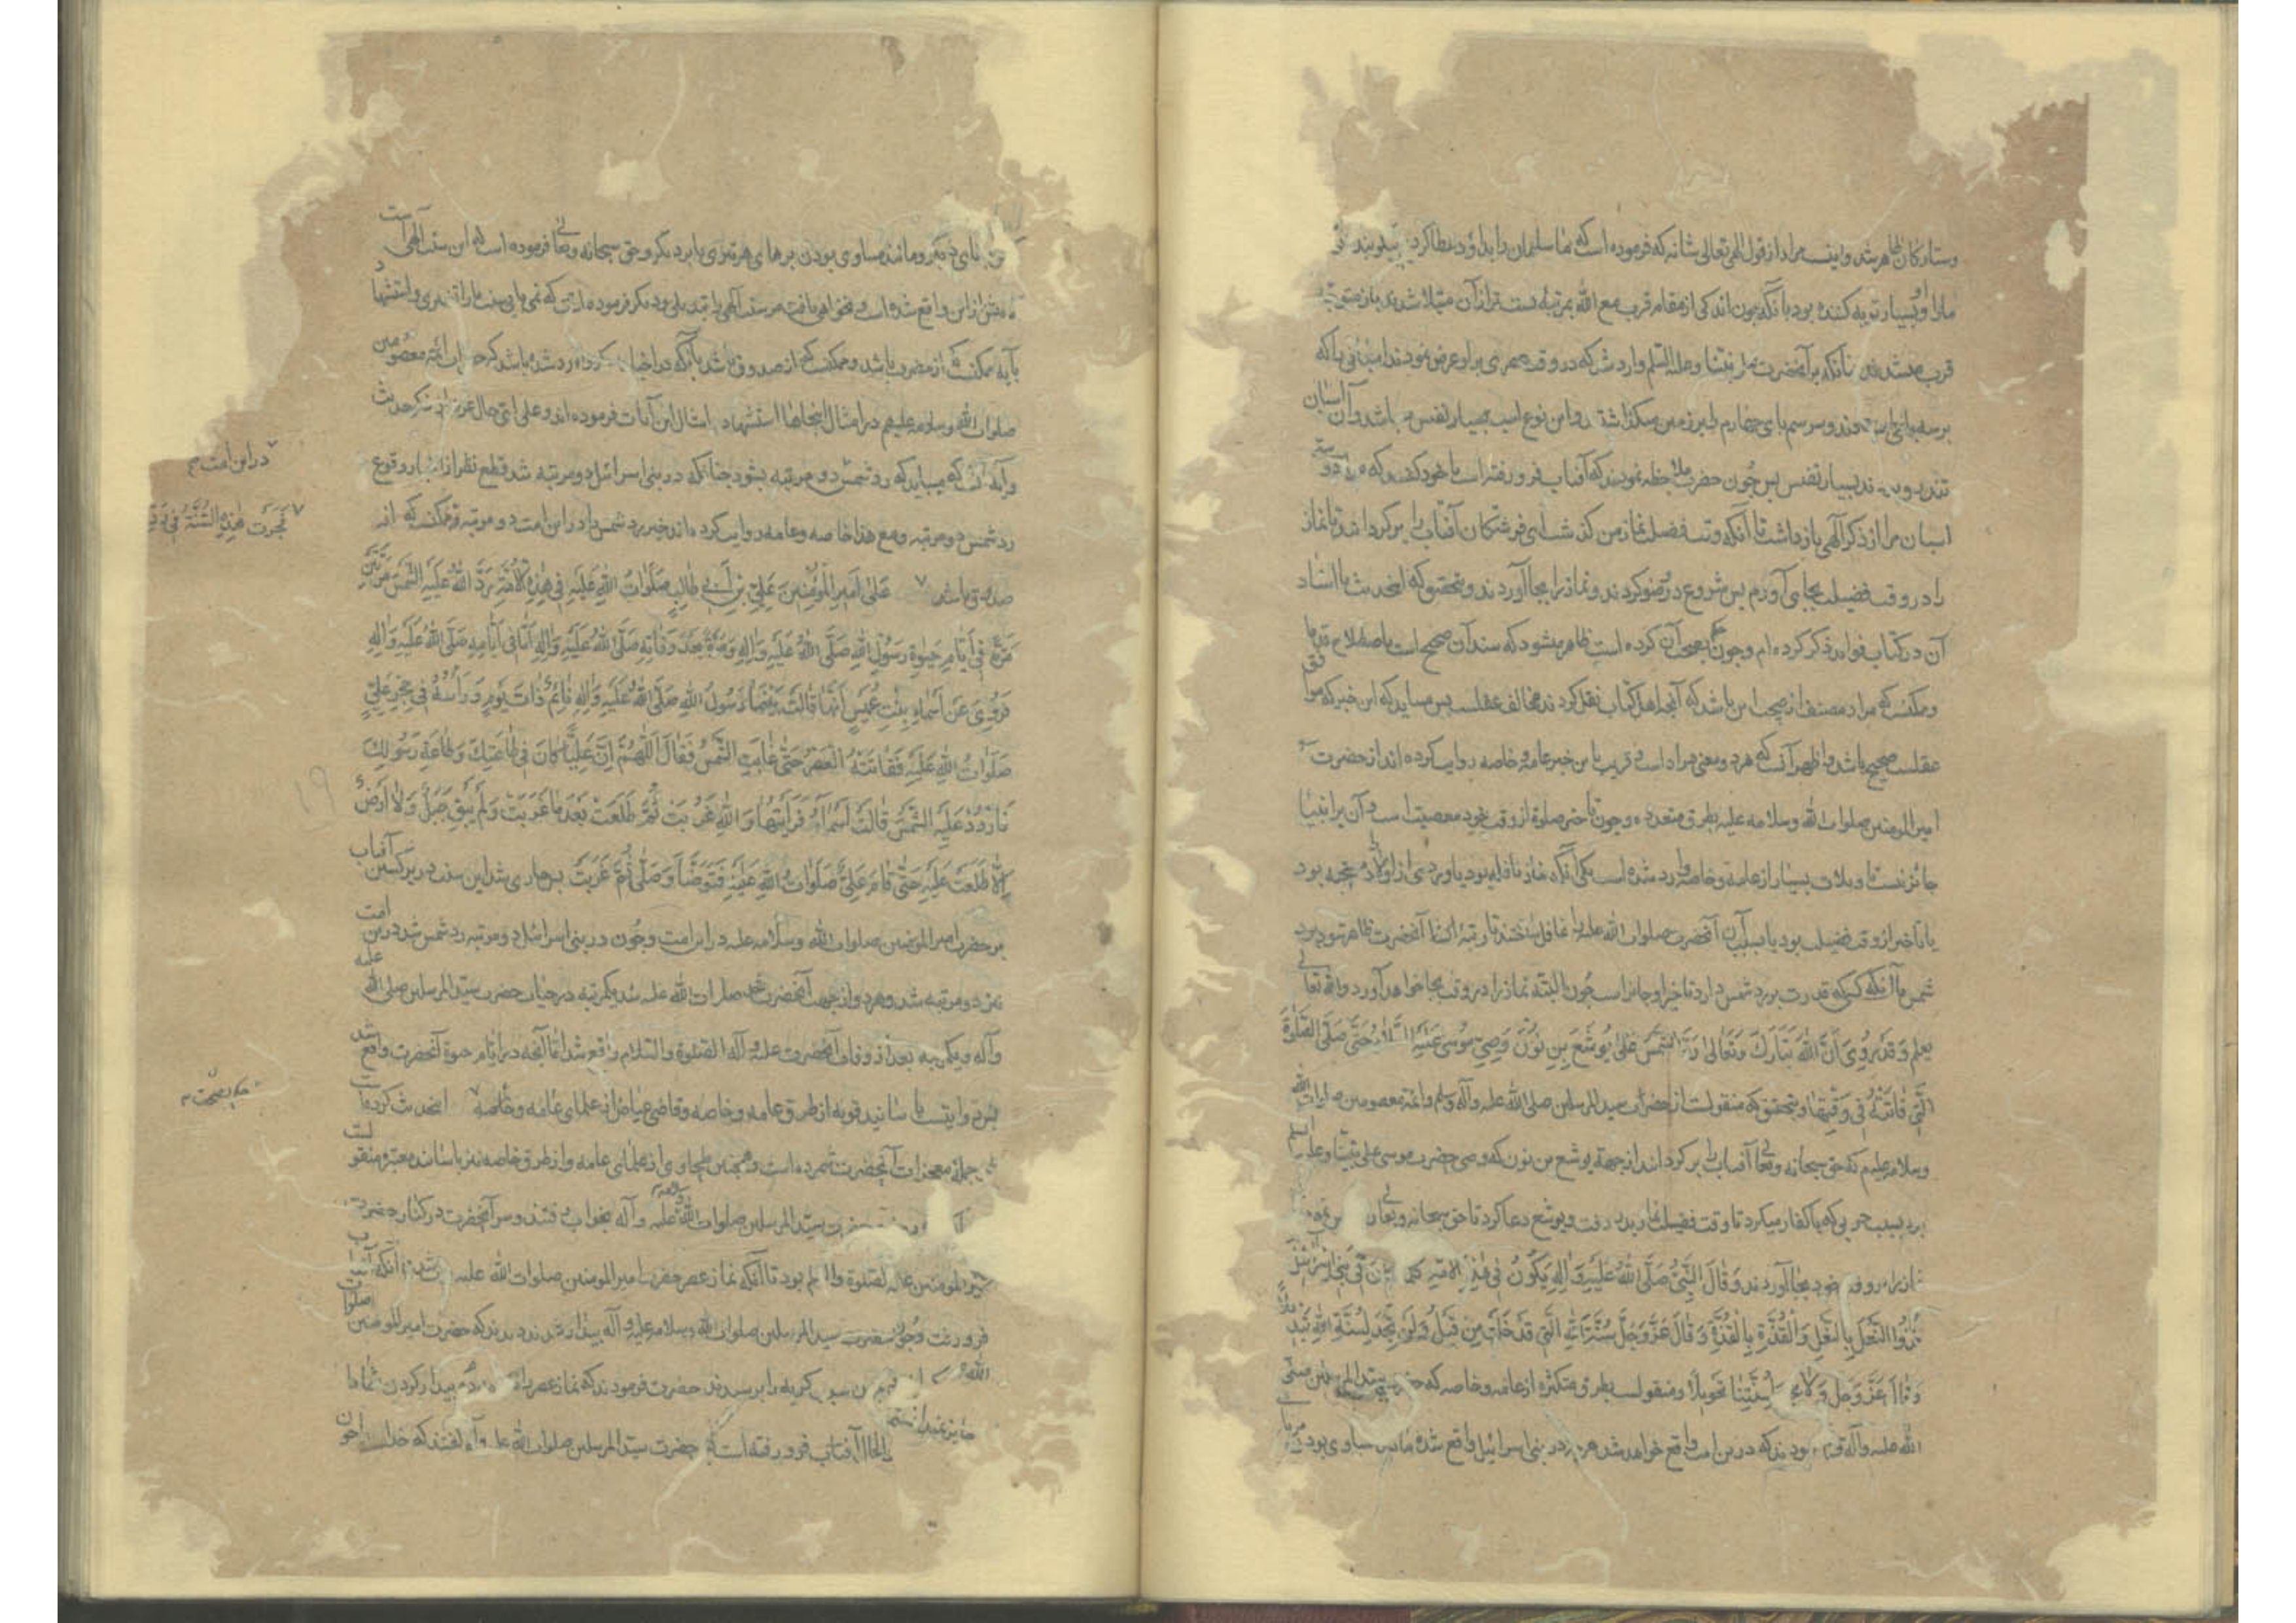 وستارکان ظاهر شد واینست مراد از قول الهی تعالی شانه که فرموده است که ما سلیمان را بداود عطا کردیم نیکو بنده
ما را او بسیار توبه کننده بود با آنکه چون اندکی از مقام قرب مع الله بمرتبهٔ پست تر از آن مبتلا شدند باز متوجه
قرب میشدند آنکه بر آنحضرت علی نبینا وعلیه السلم وارد شد که در وقت عصری براو عرض نمودند اسبانی را که
برسه پا می ایستادند و سر سم پای چهارم را بر زمین میگذاشتند و این نوع اسب بسیار نفیس میباشد وآن اسبان
تندرو بودند بسیار نفیس پس چون حضرت ملاحظه نمودند که آفتاب فرو رفته است با خود گفتند که دوستی
اسبان مرا از ذکر الهی بازداشت تا آنکه وقت فضیلت نماز من گذشت ای فرشتگان آفتاب را برگردانید تا نماز
را در وقت فضیلت بجای آورم پس شروع در وضو کردند و نماز را بجا آوردند و بتحقیق که اینحدیث با اسناد
آن در کتاب فواید ذکر کرده ام وچون حکم بصحت آن کرده است ظاهر میشود که سند آن صحیح است باصطلاح قدما
وممکنست که مراد مصنف از صحت این باشد که آنچه اهل کتاب نقل کردند مخالف عقلست پس میباید که این خبر که موافق
عقلست صحیح باشد و اظهر آنست که هر دو معنی مراد است و قریب باین خبر عامه و خاصه روایت کرده اند از حضرت
امیر المومنین صلوات الله وسلامه علیه بطرق متعدده وچون تاخیر صلوة از وقت خود معصیتست و آن بر انبیا
جائز نیست تاویلات بسیار از عامه و خاصه وارد شده است یکی آنکه نماز نافله بود یا وردی از اوراد مستحبه بود
یا تاخیر از وقت فضیلت بود یا بسبب آن آنحضرت صلوات الله علیه را غافل ساختند تا رتبهٔ آنحضرت ظاهر شود برد
شمس با آنکه کسیکه قدرت برد شمس دارد تاخیر او جایز است چون البته نماز را در وقت بجا خواهد آورد والله تعالی
یعلم وَقَدْ رُوِیَ اَنَّ اللهَ تَبَارَكَ وَتَعَالٰی رَدَّ الشَّمْسَ عَلٰی یُوشَعَ بْنِ نُونٍ وَصِیِّ مُوسٰی عَلَیْهِ السَّلَامُ حَتّٰی صَلَّی الصَّلٰوةَ
الَّتِی فَاتَتْهُ فِی وَقْتِهَا وبتحقیق که منقولست از حضرت سید المرسلین صلی الله علیه وآله وسلم وائمه معصومین صلوات الله
وسلامه علیهم که حق سبحانه وتعالی آفتاب را برگردانید از جهة یوشع بن نون که وصی حضرت موسی علی نبینا وعلیه السلم
بود بسبب حربی که با کفار میکرد تا وقت فضیلت نماز بدر رفت ویوشع دعا کرد تا حق سبحانه وتعالی
نماز را در وقت خود بجا آوردند وَقَالَ النَّبِیُّ صَلَّی اللهُ عَلَیْهِ وَاٰلِهٖ یَکُونُ فِی هٰذِهِ الْاُمَّةِ کُلُّ مَا کَانَ فِی بَنِی اِسْرَائِیلَ
حَذْوَ النَّعْلِ بِالنَّعْلِ وَالْقُذَّةِ بِالْقُذَّةِ وَقَالَ عَزَّ وَجَلَّ سُنَّةَ اللهِ الَّتِی قَدْ خَلَتْ مِنْ قَبْلُ وَلَنْ تَجِدَ لِسُنَّةِ اللهِ تَبْدِیلًا
وَقَالَ عَزَّ وَجَلَّ وَلَا تَجِدُ لِسُنَّتِنَا تَحْوِیلًا ومنقولست بطرق متکثره از عامه و خاصه که حضرت سید المرسلین صلی
الله علیه وآله فرمودند که در این امت واقع خواهد شد هر چه در بنی اسرائیل واقع شده مانند مساوی بودن
تای دیگر ومانند مساوی بودن پرهای هر تیری با پر دیگر وحق سبحانه وتعالی فرموده است که این سنت الهی است
که پیش ازین واقع شده است ونخواهی یافت مر سنت الهی را تبدیلی ودیگر فرموده است که نمی یابی سنت ما را تغییری واستشهاد
بآیه ممکنست که از حضرت باشد وممکنست که از صدوق باشد با آنکه در اخبار وارد شده باشد که حضرات ائمه معصومین
صلوات الله وسلامه علیهم در امثال اینجاها استشهاد بامثال این آیات فرموده اند وعلی ای حال غرض از ذکر حدیث
وآیه آنست که میباید که رد شمس دو مرتبه بشود چنانکه در بنی اسرائیل دو مرتبه شد قطع نظر از اخبار وقوع
رد شمس دو مرتبه ومع هذا خاصه وعامه روایت کرده اند خبر رد شمس را در این امت دو مرتبه وممکنست که از
صدوق باشد عَلٰی اَمِیرِ الْمُؤْمِنِینَ عَلِیِّ بْنِ اَبِی طَالِبٍ صَلَوَاتُ اللهِ عَلَیْهِ فِی هٰذِهِ الْاُمَّةِ رَدَّ اللهُ عَلَیْهِ الشَّمْسَ مَرَّتَیْنِ
مَرَّةً فِی اَیَّامِ حَیٰوةِ رَسُولِ اللهِ صَلَّی اللهُ عَلَیْهِ وَاٰلِهٖ وَمَرَّةً بَعْدَ وَفَاتِهٖ صَلَّی اللهُ عَلَیْهِ وَاٰلِهٖ اَمَّا فِی اَیَّامِهٖ صَلَّی اللهُ عَلَیْهِ وَاٰلِهٖ
فَرُوِیَ عَنْ اَسْمَاءَ بِنْتِ عُمَیْسٍ اَنَّهَا قَالَتْ بَیْنَمَا رَسُولُ اللهِ صَلَّی اللهُ عَلَیْهِ وَاٰلِهٖ نَائِمٌ ذَاتَ یَوْمٍ وَرَأْسُهُ فِی حِجْرِ عَلِیٍّ
صَلَوَاتُ اللهِ عَلَیْهِ فَفَاتَتْهُ الْعَصْرُ حَتّٰی غَابَتِ الشَّمْسُ فَقَالَ اَللّٰهُمَّ اِنَّ عَلِیًّا کَانَ فِی طَاعَتِكَ وَطَاعَةِ رَسُولِكَ
فَارْدُدْ عَلَیْهِ الشَّمْسَ قَالَتْ اَسْمَاءُ فَرَاَیْتُهَا وَاللهِ غَرَبَتْ ثُمَّ طَلَعَتْ بَعْدَ مَا غَرَبَتْ وَلَمْ یَبْقَ جَبَلٌ وَلَا اَرْضٌ
اِلَّا طَلَعَتْ عَلَیْهِ حَتّٰی قَامَ عَلِیٌّ صَلَوَاتُ اللهِ عَلَیْهِ فَتَوَضَّاَ وَصَلّٰی ثُمَّ غَرَبَتْ پس جاری شد این سنت در برگشتن آفتاب
بر حضرت امیر المومنین صلوات الله وسلامه علیه در این امت وچون در بنی اسرائیل دو مرتبه رد شمس شد در این امت
نیز دو مرتبه شد وهر دو از جهت آنحضرت صلوات الله علیه شد یکمرتبه در حیات حضرت سید المرسلین صلی الله علیه
وآله ویکمرتبه بعد از وفات آنحضرت علیه وآله الصلوة والسلام واقع شد اما آنچه در ایام حیوة آنحضرت واقع شد
پس روایتست باسانید قویه از طرق عامه وخاصه وقاضی عیاض از علمای عامه وخاصه اینحدیث کرده است
از جملهٔ معجزات آنحضرت شمرده است وهمچنین طحاوی از علمای عامه واز طرق خاصه نیز باسانید معتبره منقولست
حضرت سید المرسلین صلوات الله وسلامه علیه وآله بخواب رفتند وسر آنحضرت در کنار حضرت
امیر المومنین علیه الصلوة والسلم بود تا آنکه نماز عصر حضرت امیر المومنین صلوات الله علیه تا آنکه آفتاب
فرو رفت وچون حضرت سید المرسلین صلوات الله وسلامه علیه وآله بیدار شدند دیدند که حضرت امیر المومنین صلوات
الله سبب گریه را پرسیدند حضرت فرمودند که نماز عصر را بیدار کردن شما را
جایز نمیدانستم والحال آفتاب فرو رفته است حضرت سید المرسلین صلوات الله علیه وآله گفتند که خداوندا چون
در این امت
فَجَرَتْ هٰذِهِ السُّنَّةُ فِی
حکم بصحت
۱۹